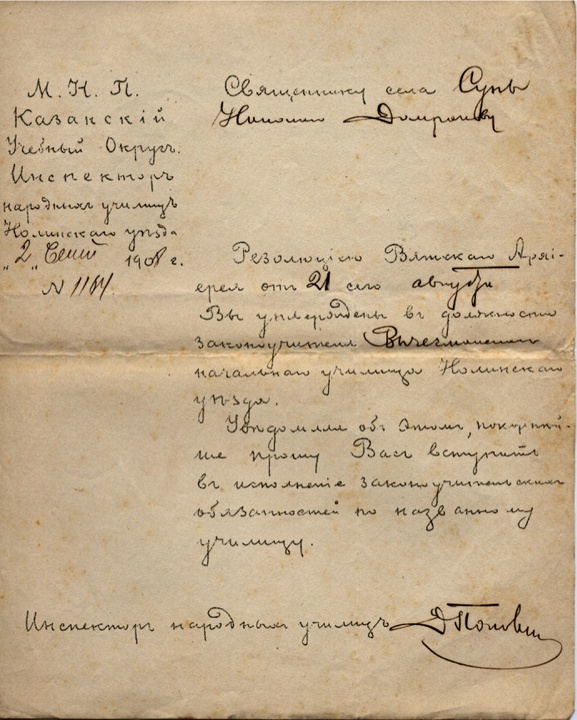 М. Н. П.
Казанскій
Учебный Округъ.
Инспекторъ
народныхъ училищъ
Нолинскаго уѣзда
"2" Сент 1908 г.
№ 1184.
Священнику села Суны
Домрачеву
Резолюціею Вятскаго Архі-
ерея отъ 21 сего августа
Вы утверждены въ должности
законоучителя
начальнаго училища Нолинскаго
уѣзда.
Увѣдомляя объ этомъ, покорнѣй-
ше прошу Васъ вступить
въ исполненіе законоучительскихъ
обязанностей по названному
училищу.
Инспекторъ народныхъ училищъ